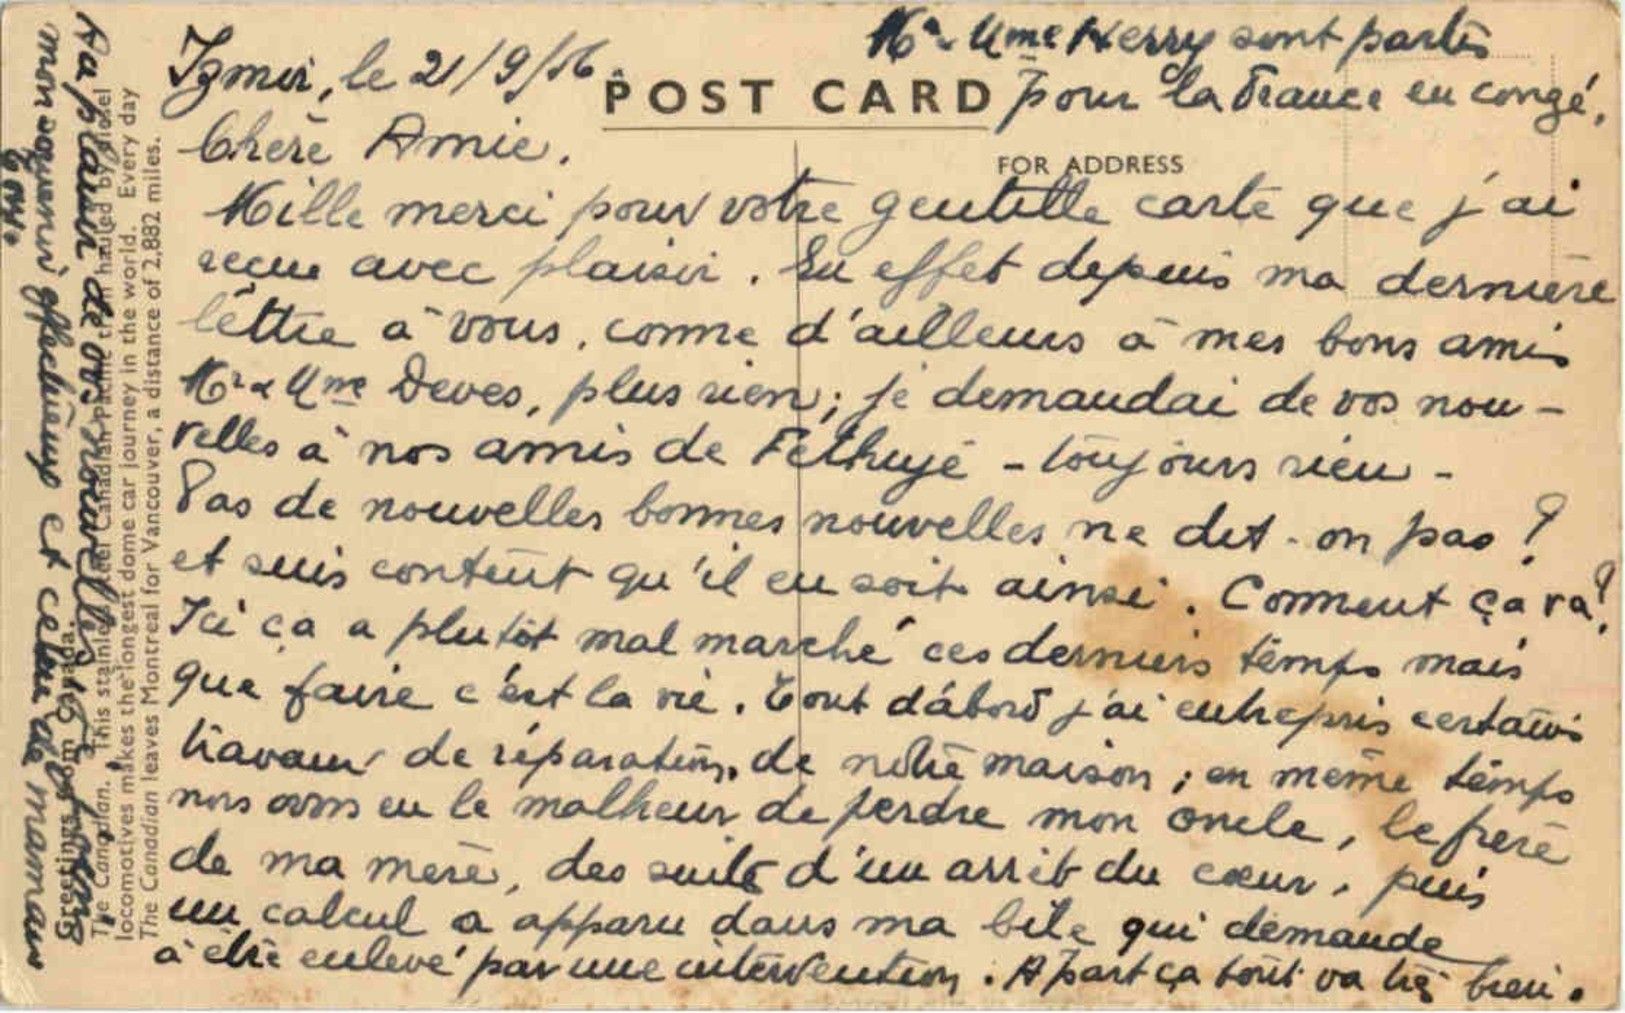 Izmir, le 21/9/56.
Mr & Mme Herry sont partis
pour la France en congé.
POST CARD
FOR ADDRESS
Chère Amie,
Mille merci pour votre gentille carte que j'ai
reçue avec plaisir. En effet depuis ma dernière
lettre à vous, comme d'ailleurs à mes bons amis
Mr & Mme Deves, plus rien; je demandai de vos nou-
velles à nos amis de Fethiyé - toujours rien -
Pas de nouvelles bonnes nouvelles ne dit-on pas ?
et suis content qu'il en soit ainsi. Comment ça va?
Ici ça a plutôt mal marché ces derniers temps mais
que faire c'est la vie. Tout d'abord j'ai entrepris certains
travaux de réparation de notre maison; en même temps
nous avons eu le malheur de perdre mon oncle, le frère
de ma mère, des suite d'un arrêt du cœur, puis
un calcul a apparu dans ma bile qui demande
à être enlevé par une intervention. A part ça tout va très bien.
Au plaisir de vos nouvelles
mon souvenir affectueux et celui de maman
Greetings from Canada.
The Canadian. This stainless steel Canadian Pacific train hauled by diesel
locomotives makes the longest dome car journey in the world. Every day
The Canadian leaves Montreal for Vancouver, a distance of 2,882 miles.